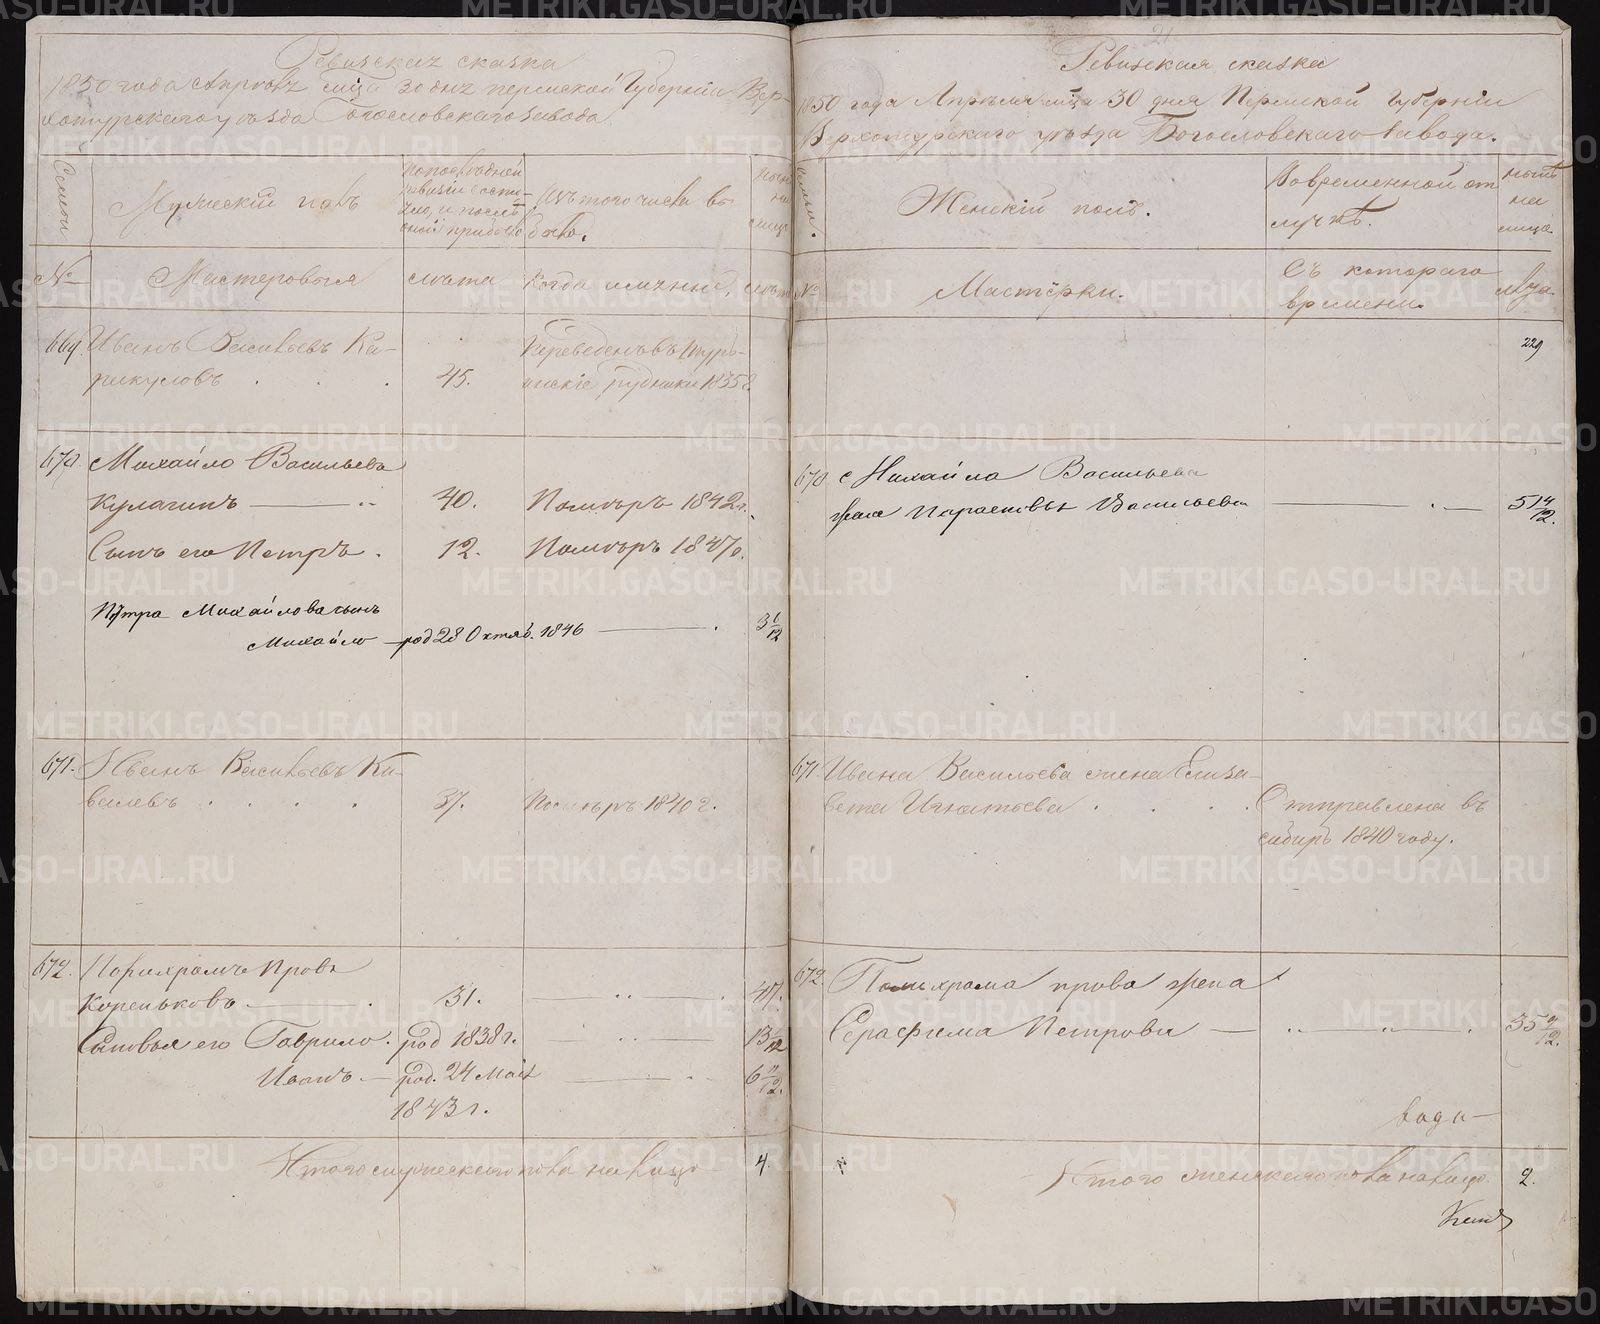 Ревизская сказка
1850 года Апреля м‑ца 30 дня Пермской Губернии Вер-
хотурскаго уезда Богословскаго завода
Семьи
Мужеский полъ
По последней
ревизіи состо-
яло, и после
оной прибыло
Изъ того числа вы-
было.
ныне
на
лицо
№
Мастеровыя
лета
Когда именно,
лета
669. Иванъ Васильевъ Ка-
рикуловъ . . . 45.
Переведенъ въ Турь-
инскіе рудники 1835 г.
670. Михайло Васильевъ
Кулагинъ 40. Померъ 1842 г.
Сынъ его Петръ. 12. Померъ 1847 г.
Петра Михайлова сынъ
Михайло род 28 Октяб. 1846 3 6/12
671. Иванъ Васильевъ Ки-
37. Померъ 1840 г.
672. Провъ
Кореньковъ 31. 47.
Сыновья его Гаврило. род 1838 г. 13
Иванъ. род. 24 Мая 6 11/12.
1843 г.
Итого мужескаго пола на лицо 4.
Ревизская сказка
1850 года Апреля м‑ца 30 дня Пермской Губерніи
Верхотурскаго уезда Богословскаго завода.
Семьи.
Женскій полъ.
Во временной от
лучке.
ныне
на
лицо
№
Мастерки.
Съ котораго
времени.
лета
229
670 Михайла Васильева
жена Парасковья Васильева 51 4/12.
671 Ивана Васильева жена Елиза-
вета Игнатьева . . . Отправлена въ
сибирь 1840 году.
672 прова жена
Серафима Петрова 35 9/12.
Итого женскаго пола на лицо. 2.